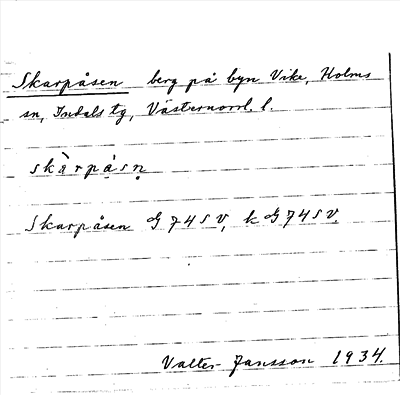 Skarpåsen berg på byn Vike, Holms
sn, Indals tg, Västernorrl. l.
skàrpåsn̥
Skarpåsen G 74 S V, k G 74 S V.
Valter Jansson 1934.